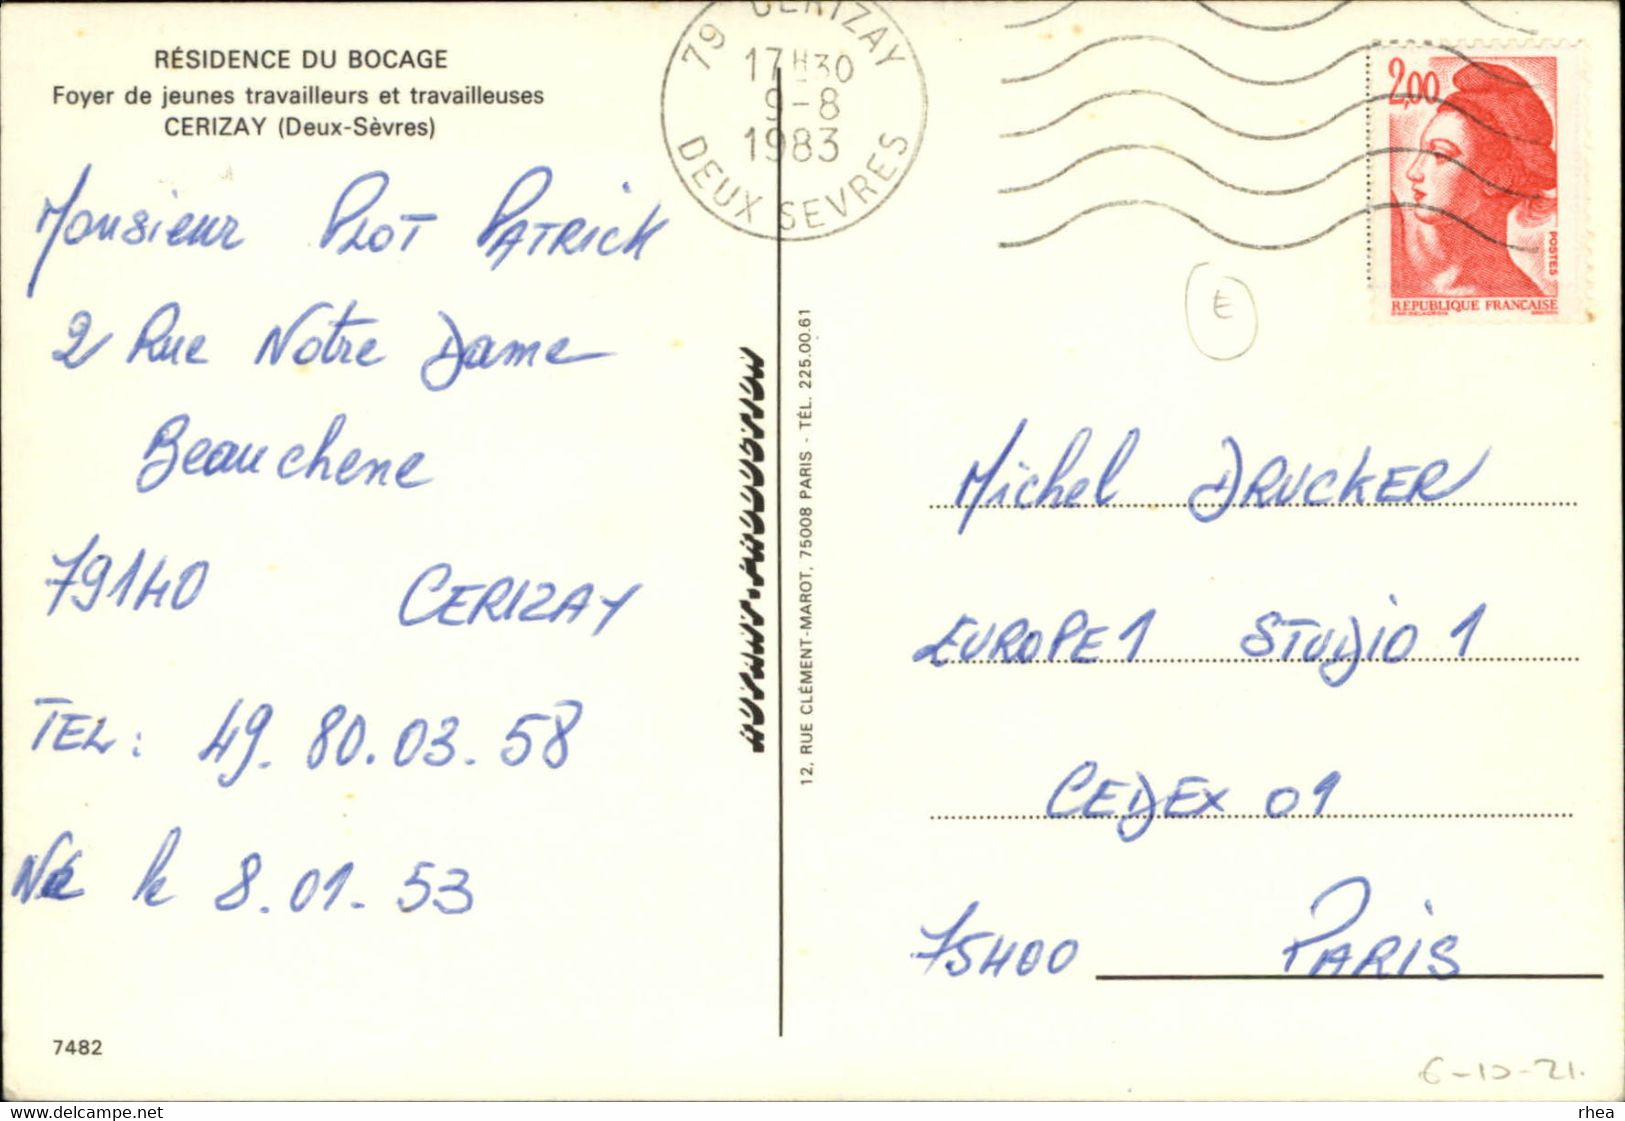 RÉSIDENCE DU BOCAGE
Foyer de jeunes travailleurs et travailleuses
CERIZAY (Deux-Sèvres)
79 CERIZAY
17H30
9-8
1983
DEUX SEVRES
2,00
POSTES
REPUBLIQUE FRANCAISE
Monsieur PLOT PATRICK
2 Rue Notre Dame
Beauchene
79140 CERIZAY
TEL: 49.80.03.58
Né le 8.01.53
7482
12, RUE CLÉMENT-MAROT, 75008 PARIS - TÉL. 225.00.61
E
Michel DRUCKER
EUROPE 1 STUDIO 1
CEDEX 01
75400 PARIS
6-10-21.
rhea